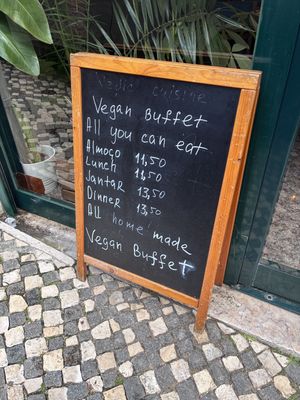 Vegan cuisine
Vegan Buffet
All you can eat
Almoço 11,50
Lunch 11,50
Jantar 13,50
Dinner 13,50
All home made
Vegan Buffet